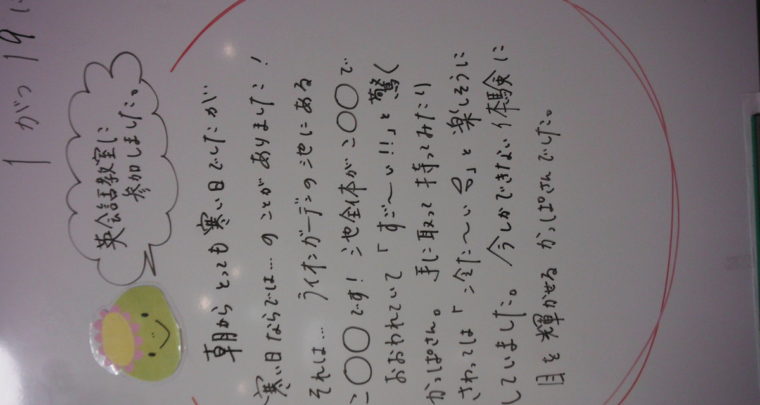 1 がつ 19 に
英会話教室に
参加しました。
朝から とっても 寒い日でしたが
寒い日ならでは…のことがありました！
それは… ライオンガーデンの池にある
こ〇〇です！ 池全体がこ〇〇で
おおわれていて「すご〜い!!」と驚く
かっぱさん。手に取って 持ってみたり
さわっては「冷た〜い」と楽しそうに
していました。今しかできない体験に
目を輝かせる かっぱさんでした。